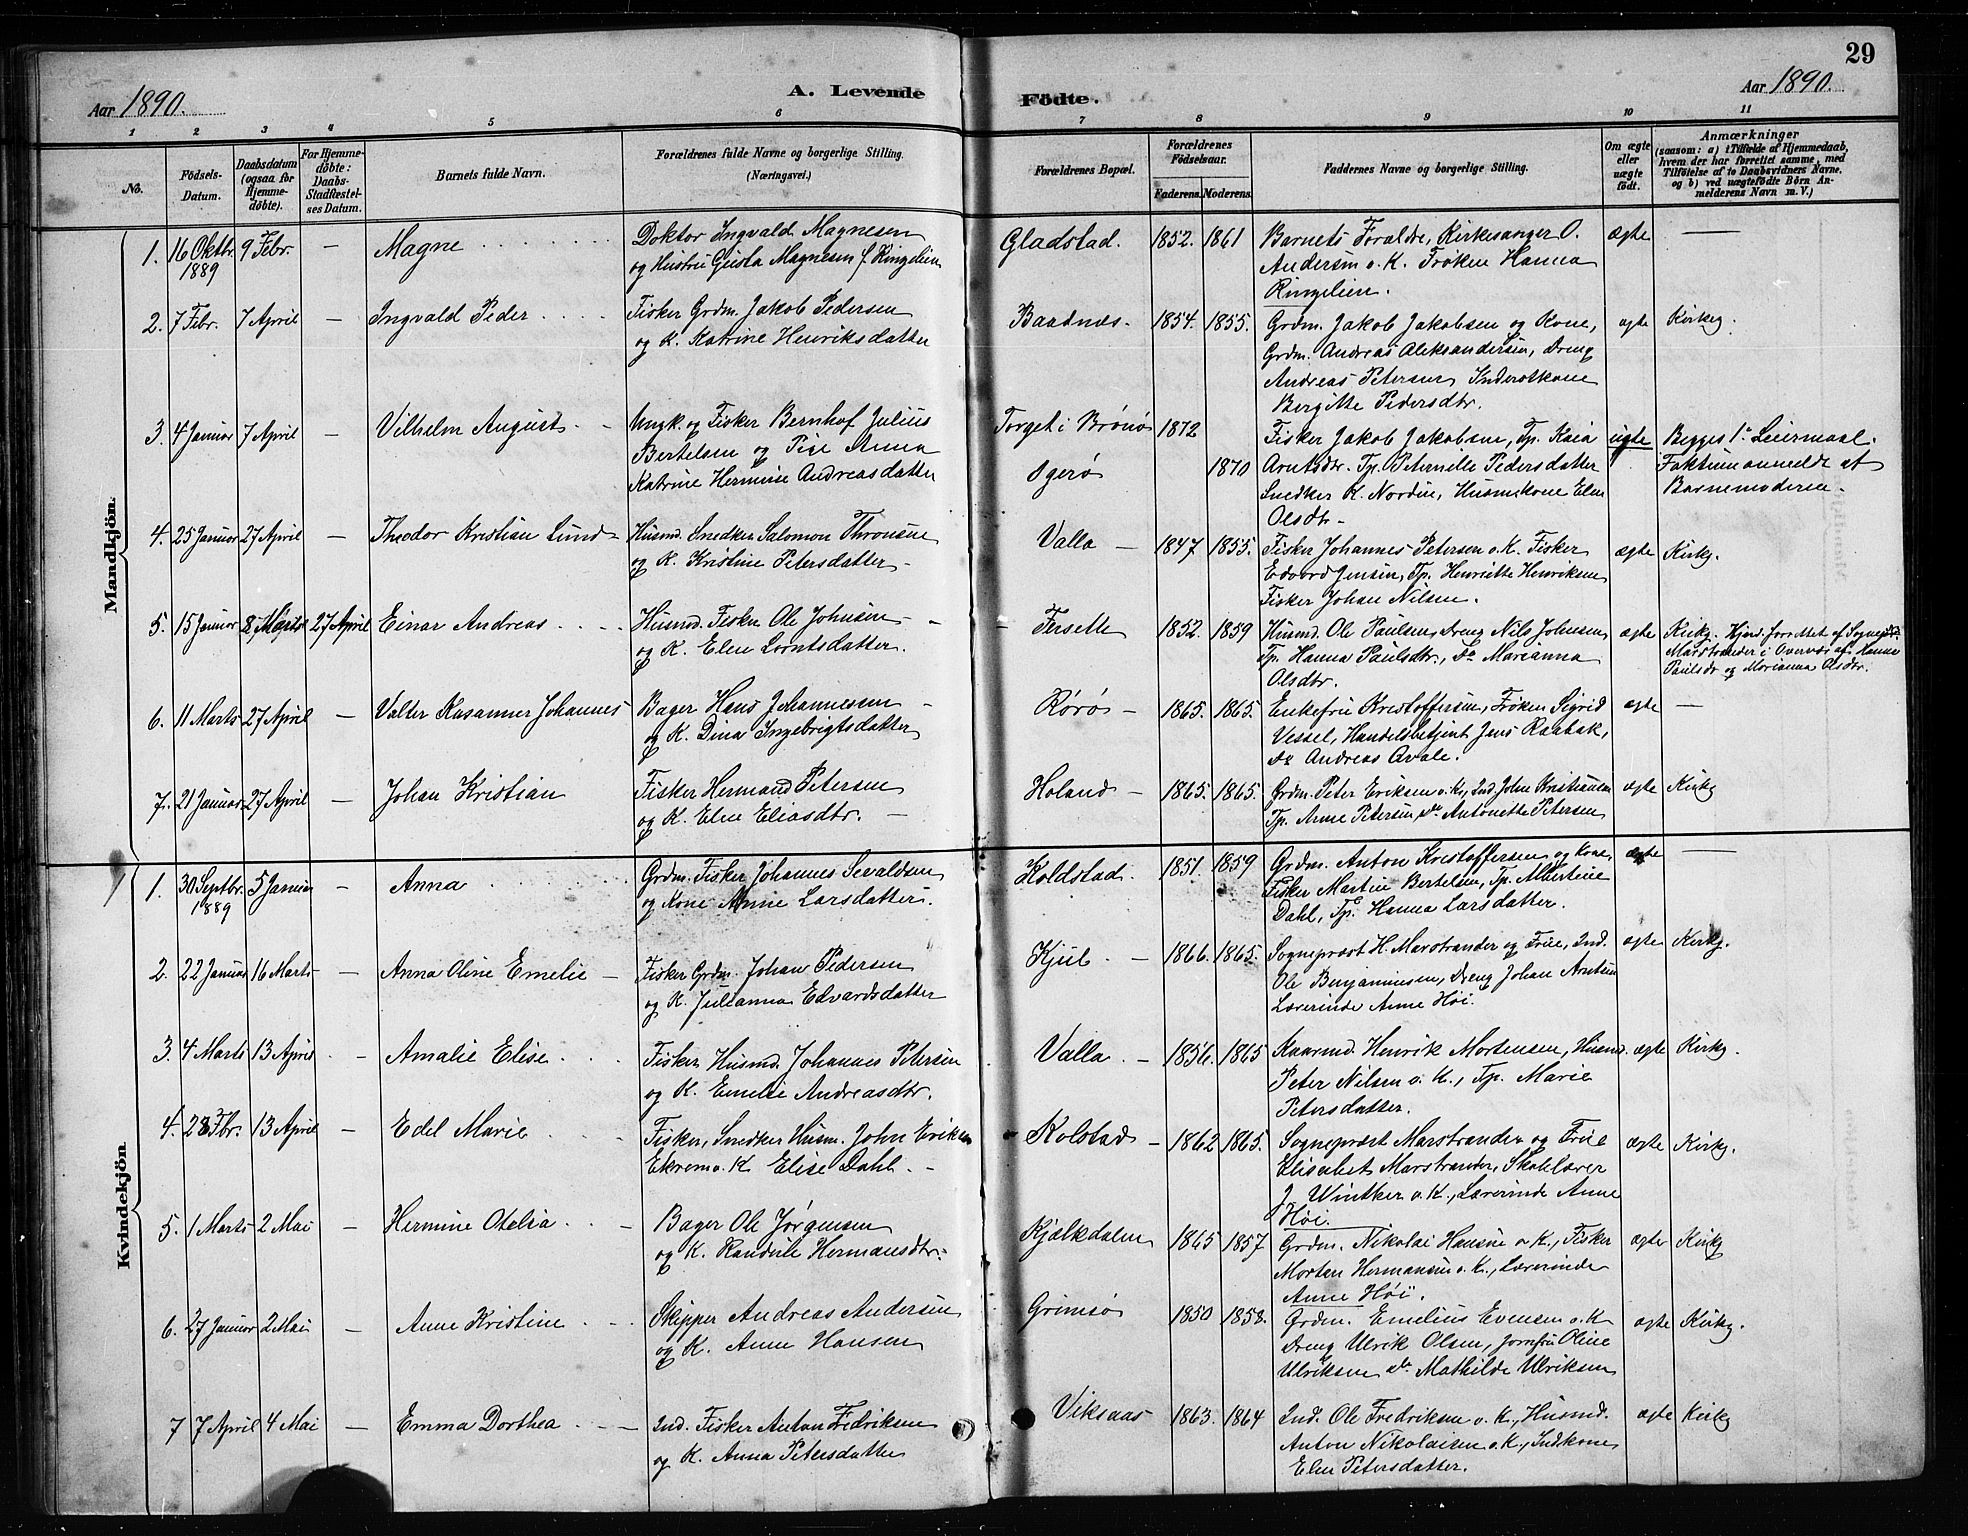 29
Aar 1890. A. Levende Födte. Aar 1890.
1 2 3 4 5 6 7 8 9 10 11
No.
Födsels-
Datum.
Daabsdatum
(ogsaa for
Hjemme-
döbte).
For Hjemme-
döbte:
Daabs-
Stadfæstel-
ses Datum.
Barnets fulde Navn.
Forældrenes fulde Navne og borgerlige Stilling.
(Næringsvei.)
Forældrenes Bopæl.
Forældrenes
Födselsaar.
Faderens. Moderens.
Faddernes Navne og borgerlige Stilling.
Om ægte
eller
uægte
födt.
Anmærkninger
(saasom: a) i Tilfælde af Hjemmedaab,
hvem der har forrettet samme, med
Tilföielse af to Daabsvidners Navne,
og b) ved uægtefödte Börn An-
melderens Navn m. V.)
Mandkjön.
1. 16 Oktbr. 9 Febr. — Magne Doktor Ingvald Magnesen Gladstad. 1852. 1861 Barnets Foraldre, Kirkesanger O. ægte —
1889 og Hustru Gusta Magnesen f. Ringelien Andersen o. K. Frøken Hanna
Ringelien.
2. 7 Febr. 7 April — Ingvald Peder Fisker Grdm. Jakob Pedersen Baadnæs. 1854. 1855. Grdm. Jakob Jakobsen og Kone, ægte Kirkeg.
og K. Katrine Henriksdatter Grdm. Andreas Aleksandersen, Dreng
Andreas Petersen, Inderstkone
Bergitte Pedersdtr.
3. 4 Januar 7 April — Vilhelm August Ungk. og Fisker Bernhof Julius Torget i Brønø 1872 Fisker Jakob Jakobsen, Tp. Kaia uægte Begges 1ste Leiermaal.
Bertelsen og Pige Anna Øgerø 1870 Arntsdtr. Tp. Peternille Pedersdatter Faktum anmeldt af
Katrine Hermine Andreasdatter Snedker K. Nordin, Husmkone Elen Barnemoderen.
Olsdtr.
4. 25 Januar 27 April — Theodor Kristian Lund Husmd. Snedker Salomon Thronsen Valla — 1847 1855. Fisker Johannes Petersen o. K. Fisker ægte Kirkg.
og K. Kristine Petersdatter Edvard Jensen, Tp. Henriette Henriksen,
Fisker Johan Nilsen.
5. 15 Januar 8 Marts 27 April Einar Andreas Husmd. Fisker Ole Johnsen Tersette 1852. 1859 Husmd. Ole Paulsen, Dreng Nils Johnsen, ægte Kirkg. Hjmd. forrettet af Sognepr.
og K. Elen Lorntsdatter. Tp. Hanna Paulsdtr., Do Marianna Marstrander i Overvær af Hanna
Olsdtr. Paulsdr og Marianna Olsdtr.
6. 11 Marts 27 April — Valter Kasanner Johannes Bager Hans Johannessen Rørø — 1865. 1865. Enkefru Kristoffersen, Frøken Sigrid ægte —
og K. Dina Ingebrigtsdatter Vessel, Handelsbetjent Jens Rabbak,
do Andreas Qvale.
7. 21 Januar 27 April — Johan Kristian Fisker Hermand Petersen Holand — 1865. 1865. Grdm. Peter Eriksen o. K., Ind. John Kristiansen ægte Kirkg
og K. Elen Eliasdtr. — Tp. Anne Petersen, do Antonette Petersen
Kvindekjön.
1. 30 Septbr. 5 Januar — Anna Grdm. Fisker Johannes Sevaldsen Koldstad. 1851. 1859 Grdm. Anton Kristoffersen og Kone, ægte —
1889 og Kone Anne Larsdatter. Fisker Martin Bertelsen, Tp. Albertine
Dahl, Tp. Hanna Larsdatter.
2. 22 Januar 16 Marts — Anna Oline Emelie — Fisker Grdm. Johan Pedersen Kjul — 1866. 1865. Sogneprest H. Marstrander og Frue, Ind. ægte Kirkg.
og K. Julianna Edvardsdatter Ole Benjaminsen, Dreng Johan Arntsen
Lærerinde Anne Høi.
3. 4 Marts 13 April — Amalie Elise Fisker Husmd. Johannes Petersen Valla — 1856. 1865 Kaarmd. Henrik Mortensen, Husmd. ægte Kirkg.
og K. Emelie Andreasdtr. Peter Nilsen o. K., Tp. Marie
Petersdatter.
4. 28 Fbr. 13 April Edel Marie Fisker, Snedker Husm. John Eriksen Kolstad — 1862 1865. Sogneprest Marstrander og Frue ægte Kirkg.
Ekrem o. K Elise Dahl. — Elisabet Marstrander, Skolelærer
J. Wintker o. K., Lærerinde Anne
Høi.
5. 1 Marts 2 Mai — Hermine Otelia Bager Ole Jørgensen Kjælkdalen 1865 1857 Grdm. Nikolai Hansen o. K., Fisker ægte Kirkg
og K. Randine Hermansdtr. Morten Hermansen o. K., Lærerinde
Anne Høi.
6. 27 Januar 2 Mai — Anne Kristine Skipper Andreas Andersen Grimsø 1850 1858. Grdm. Emelius Evensen o. K ægte Kirkg.
og K. Anne Hansen Dreng Ulrik Olsen, Jomfru Oline
Ulriksen do Mathilde Ulriksen
7 7 April 4 Mai — Emma Dorthea Ind. Fisker Anton Fedriksen Viksaas 1863. 1864 Ind. Ole Fredriksen o. K., Husmd. ægte Kirkg
og K. Anna Petersdatter Anton Nikolaisen o. K., Indkone
Elen Petersdatter.